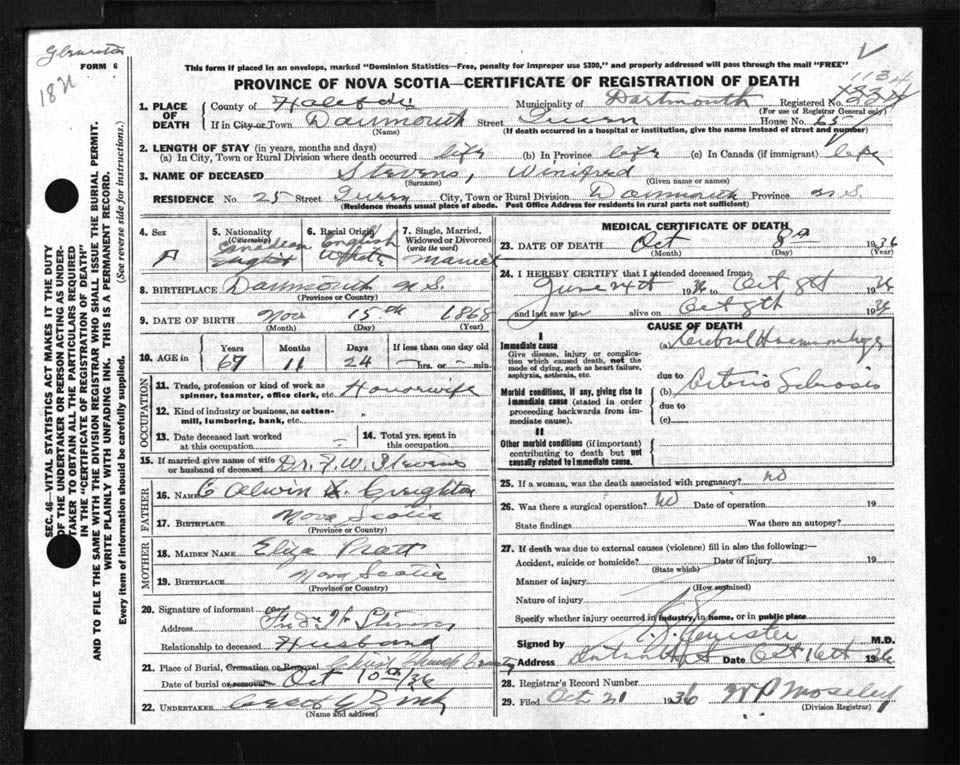 FORM 6
This form if placed in an envelope, marked "Dominion Statistics—Free, penalty for improper use $300," and properly addressed will pass through the mail "FREE"
PROVINCE OF NOVA SCOTIA—CERTIFICATE OF REGISTRATION OF DEATH
1134
1. PLACE OF DEATH County of Halifax Municipality of Dartmouth Registered No.
(For use of Registrar General only)
If in City or Town Darmouth Street Queen House No. 65
(Name) (If death occurred in a hospital or institution, give the name instead of street and number)
2. LENGTH OF STAY (in years, months and days)
(a) In City, Town or Rural Division where death occurred life (b) In Province life (c) In Canada (if immigrant) life
3. NAME OF DECEASED Stevens, Winifred
(Surname) (Given name or names)
RESIDENCE No. 25 Street Queen City, Town or Rural Division Darmouth Province N.S.
(Residence means usual place of abode. Post Office Address for residents in rural parts not sufficient)
4. Sex 5. Nationality (Citizenship) 6. Racial Origin 7. Single, Married, Widowed or Divorced (write the word)
Canadian English
English White Married
8. BIRTHPLACE Darmouth N.S.
(Province or Country)
9. DATE OF BIRTH Nov 15th 1868
(Month) (Day) (Year)
10. AGE in Years Months Days If less than one day old
67 11 24 hrs. or min.
OCCUPATION
11. Trade, profession or kind of work as spinner, teamster, office clerk, etc. Housewife
12. Kind of industry or business, as cotton-mill, lumbering, bank, etc.
13. Date deceased last worked at this occupation 14. Total yrs. spent in this occupation
15. If married give name of wife or husband of deceased Dr. F. W. Stevens
FATHER
16. NAME C Alwin Creighton
17. BIRTHPLACE Nova Scotia
(Province or Country)
MOTHER
18. MAIDEN NAME Eliza Pratt
19. BIRTHPLACE Nova Scotia
(Province or Country)
20. Signature of informant
Address
Relationship to deceased Husband
21. Place of Burial, Cremation or Removal Christ Church
Date of burial or removal Oct 10th/36
22. UNDERTAKER
(Name and address)
MEDICAL CERTIFICATE OF DEATH
23. DATE OF DEATH Oct 8th 1936
(Month) (Day) (Year)
24. I HEREBY CERTIFY that I attended deceased from:
June 24th 1936 to Oct 8th 1936
and last saw her alive on Oct 8th 1936
CAUSE OF DEATH
I
Immediate cause (a) Cerebral Haemorrhage
Give disease, injury or complication which caused death, not the mode of dying, such as heart failure, asphyxia, asthenia, etc.
due to
Morbid conditions, if any, giving rise to immediate cause (stated in order proceeding backwards from immediate cause). (b) Arterio Sclerosis
due to
(c)
II
Other morbid conditions (if important) contributing to death but not causally related to immediate cause.
25. If a woman, was the death associated with pregnancy? no
26. Was there a surgical operation? no Date of operation 19
State findings Was there an autopsy?
27. If death was due to external causes (violence) fill in also the following:—
Accident, suicide or homicide? Date of injury 19
(State which)
Manner of injury
(How sustained)
Nature of injury
Specify whether injury occurred in industry, in home, or in public place
Signed by M.D.
Address Date Oct 16th 1936
28. Registrar's Record Number
29. Filed Oct 21 1936 W P Moseley
(Division Registrar)
SEC. 46—VITAL STATISTICS ACT MAKES IT THE DUTY
OF THE UNDERTAKER OR PERSON ACTING AS UNDER-
TAKER TO OBTAIN ALL THE PARTICULARS REQUIRED
IN THE "CERTIFICATE OF REGISTRATION OF DEATH"
AND TO FILE THE SAME WITH THE DIVISION REGISTRAR WHO SHALL ISSUE THE BURIAL PERMIT.
WRITE PLAINLY WITH UNFADING INK. THIS IS A PERMANENT RECORD.
Every item of information should be carefully supplied. (See reverse side for instructions.)